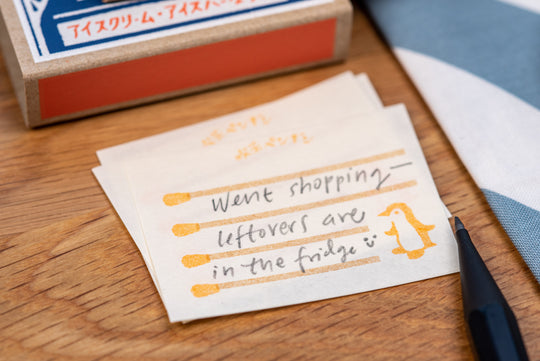 アイスクリーム・アイス
Went shopping—
leftovers are
in the fridge :)